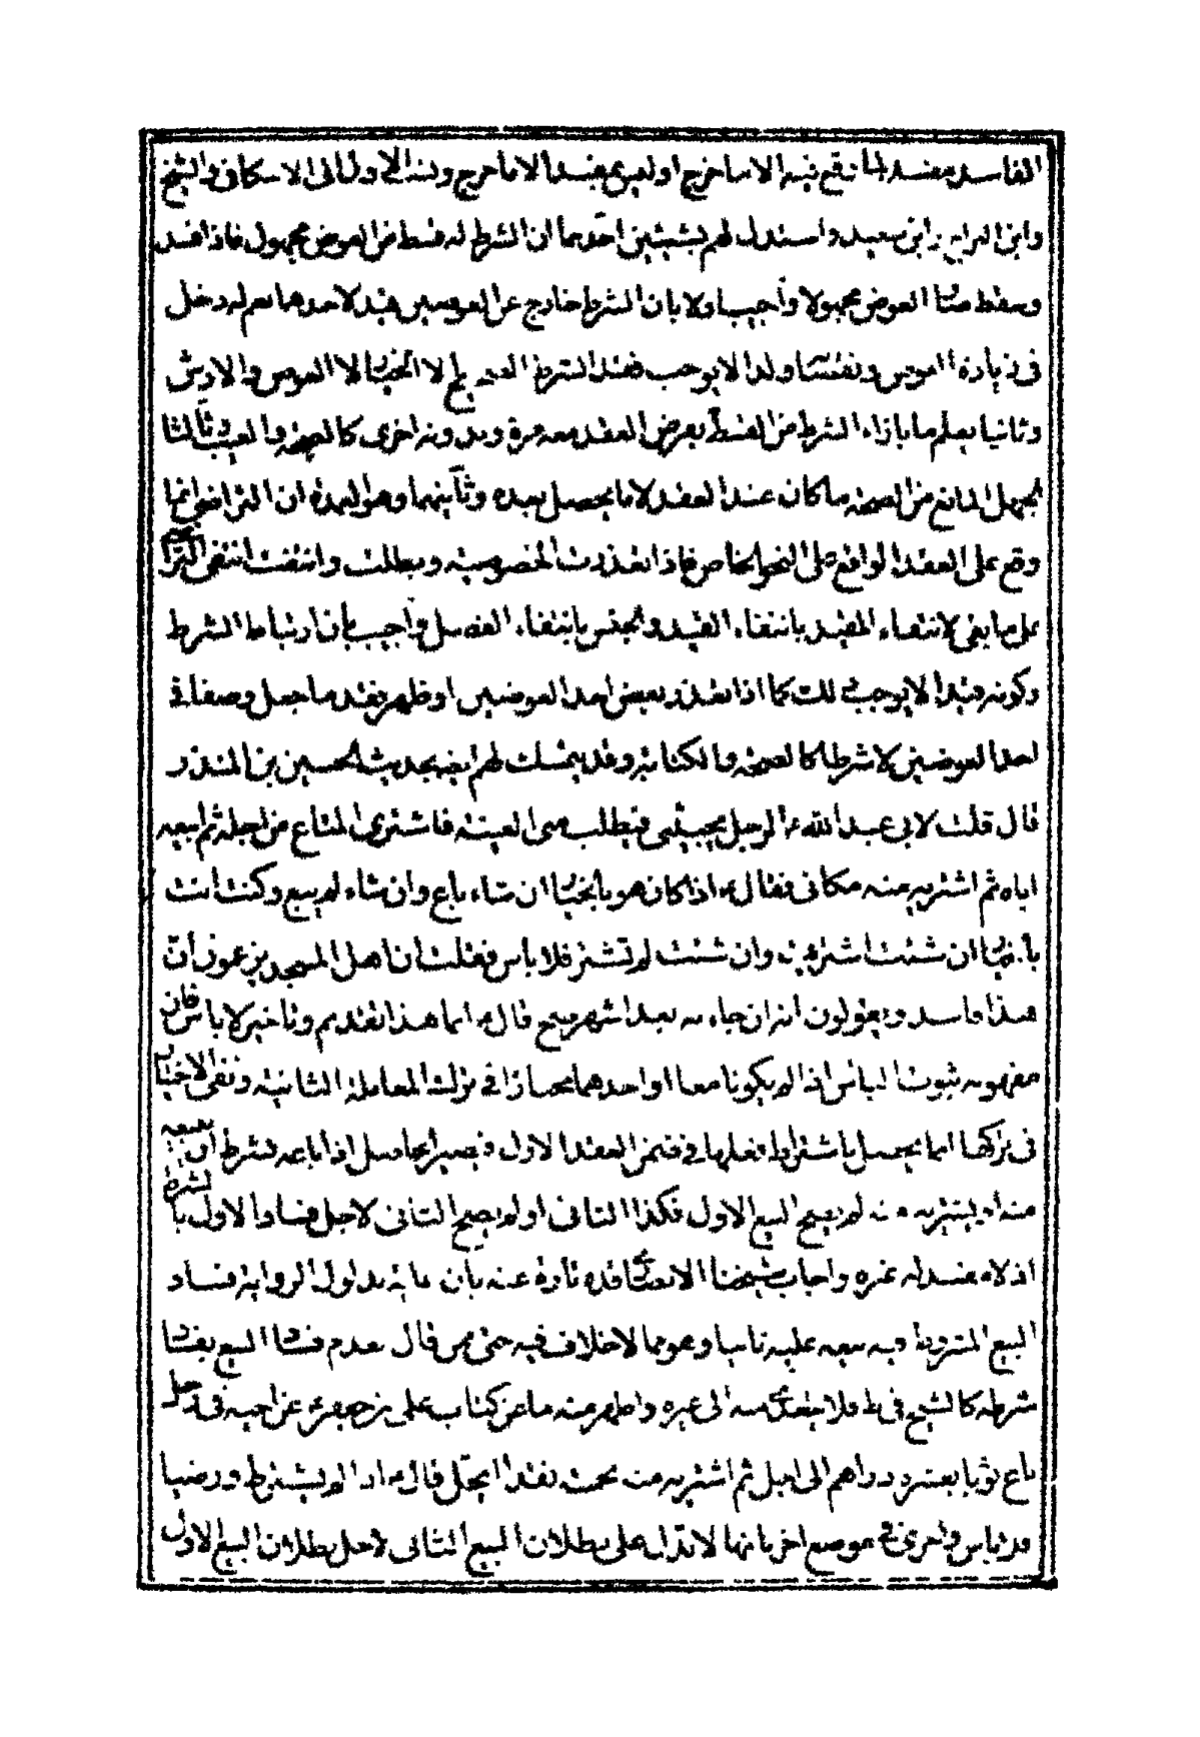 الفاسد مفسد لما يقع فيه الا ما خرج او ليس بمفسد الا ما خرج ونسب الاول الى الاسكافى والشيخ
وابن البراج وابن سعيد واستدل لهم بشيئين احدهما ان الشرط له قسط من العوض مجهول فاذا فسد
وسقط صار العوض مجهولا واجيب اولا بان الشرط خارج عن العوضين قيد لاحدهما نعم له دخل
فى زيادة العوض ونقصها ولذا لا يوجب فقد الشرط الصحيح الا الخيار لا العوض والارش
وثانيا يعلم ما بازاء الشرط من القسط بعرض العقد معه مرة وبدونه اخرى كالصحة والعيب وثالثا
الجهل المانع من الصحة ما كان عند العقد لا ما يحصل بعده وثانيهما وهو العمدة ان التراضى انما
وقع على العقد الواقع على النحو الخاص فاذا تعذرت الخصوصية وبطلت وانتفت انتفى التراضى
لانتفاء المقيد بانتفاء القيد والجنس بانتفاء الفصل واجيب بان ارتباط الشرط
وكونه قيدا لا يوجب ذلك كما اذا تعذر بعض احد العوضين او ظهر فقد ما جعل وصفا فى
احد العوضين لا شرطا كالصحة والكتابة وقد يتمسك لهم ايضا بحديث الحسين بن المنذر
قال قلت لابى عبد الله ع الرجل يجيئنى فيطلب منى العينة فاشترى المتاع من اجله ثم ابيعه
اياه ثم اشتريه منه مكانى فقال ع اذا كان هو بالخيار ان شاء باع وان شاء لم يبع وكنت انت
بالخيار ان شئت اشتريت وان شئت لم تشتر فلا باس فقلت ان اهل المسجد يزعمون ان
هذا فاسد ويقولون انه ان جاء به بعد اشهر صح قال ع انما هذا تقديم وتاخير لا باس فان
مفهومه ثبوت الباس اذا لم يكونا معا او احدهما مختارا فى ترك المعاملة الثانية ونفى الاختيار
فى تركها انما يحصل باشتراط فعلها فى ضمن العقد الاول فيصير الحاصل اذا باعه بشرط ان يبيعه
منه او يشتريه منه لم يصح البيع الاول فكذا الثانى او لم يصح الثانى لاجل فساد الاول بالشرط
اذ لا مفسد له غيره واجاب شيخنا الانصارى قده تارة عنه بان غاية مدلول الرواية فساد
البيع المشروط فيه بيعه عليه ثانيا وهو مما لا خلاف فيه حتى ممن قال بعدم فساد البيع بفساد
شرطه كالشيخ فى ط فلا يتعدى منه الى غيره واظهر منه ما عن كتاب على بن جعفر ع عن اخيه فى رجل
باع ثوبا بعشرة دراهم الى اجل ثم اشتريه منه بخمسة نقدا ايحل قال ع اذا لم يشترط ورضيا
فلا باس واخرى فى موضع اخر بانها لا تدل على بطلان البيع الثانى لاجل بطلان البيع الاول